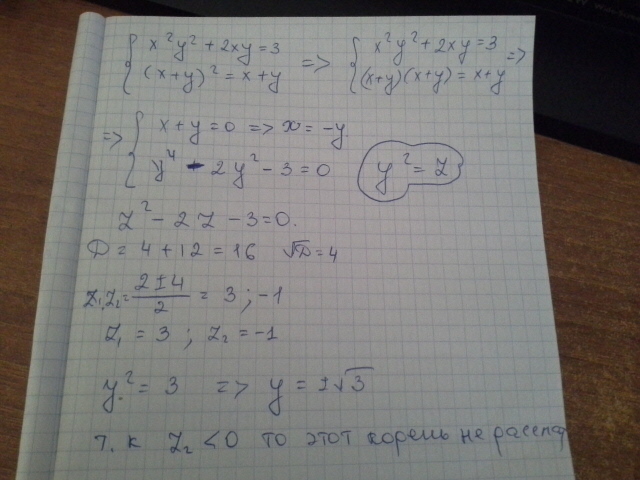 { x²y² + 2xy = 3 => { x²y² + 2xy = 3 =>
(x+y)² = x+y (x+y)(x+y) = x+y
=> { x+y=0 => x = -y.
y⁴ - 2y² - 3 = 0 y² = z
z² - 2z - 3 = 0.
D = 4 + 12 = 16 √D = 4
z₁,z₂ = (2±4)/2 = 3; -1
z₁ = 3; z₂ = -1
y² = 3 => y = ±√3
т.к z₂ < 0 то этот корень не